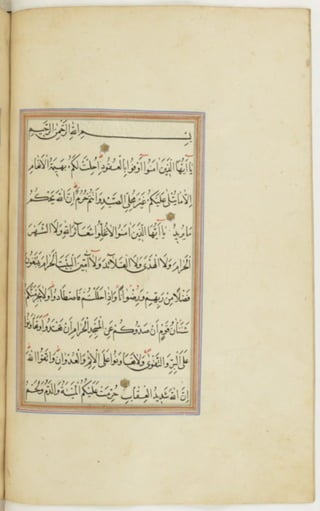 بسم الله الرحمن الرحيم
يا ايها الذين امنوا اوفوا بالعقود احلت لكم بهيمة الانعام
الا ما يتلى عليكم غير محلي الصيد وانتم حرم ان الله يحكم
ما يريد يا ايها الذين امنوا لا تحلوا شعائر الله ولا الشهر
الحرام ولا الهدى ولا القلائد ولا آمين البيت الحرام يبتغون
فضلا من ربهم ورضوانا واذا حللتم فاصطادوا ولا يجرمنكم
شنآن قوم ان صدوكم عن المسجد الحرام ان تعتدوا وتعاونوا
على البر والتقوى ولا تعاونوا على الاثم والعدوان واتقوا الله
ان الله شديد العقاب حرمت عليكم الميتة والدم ولحم